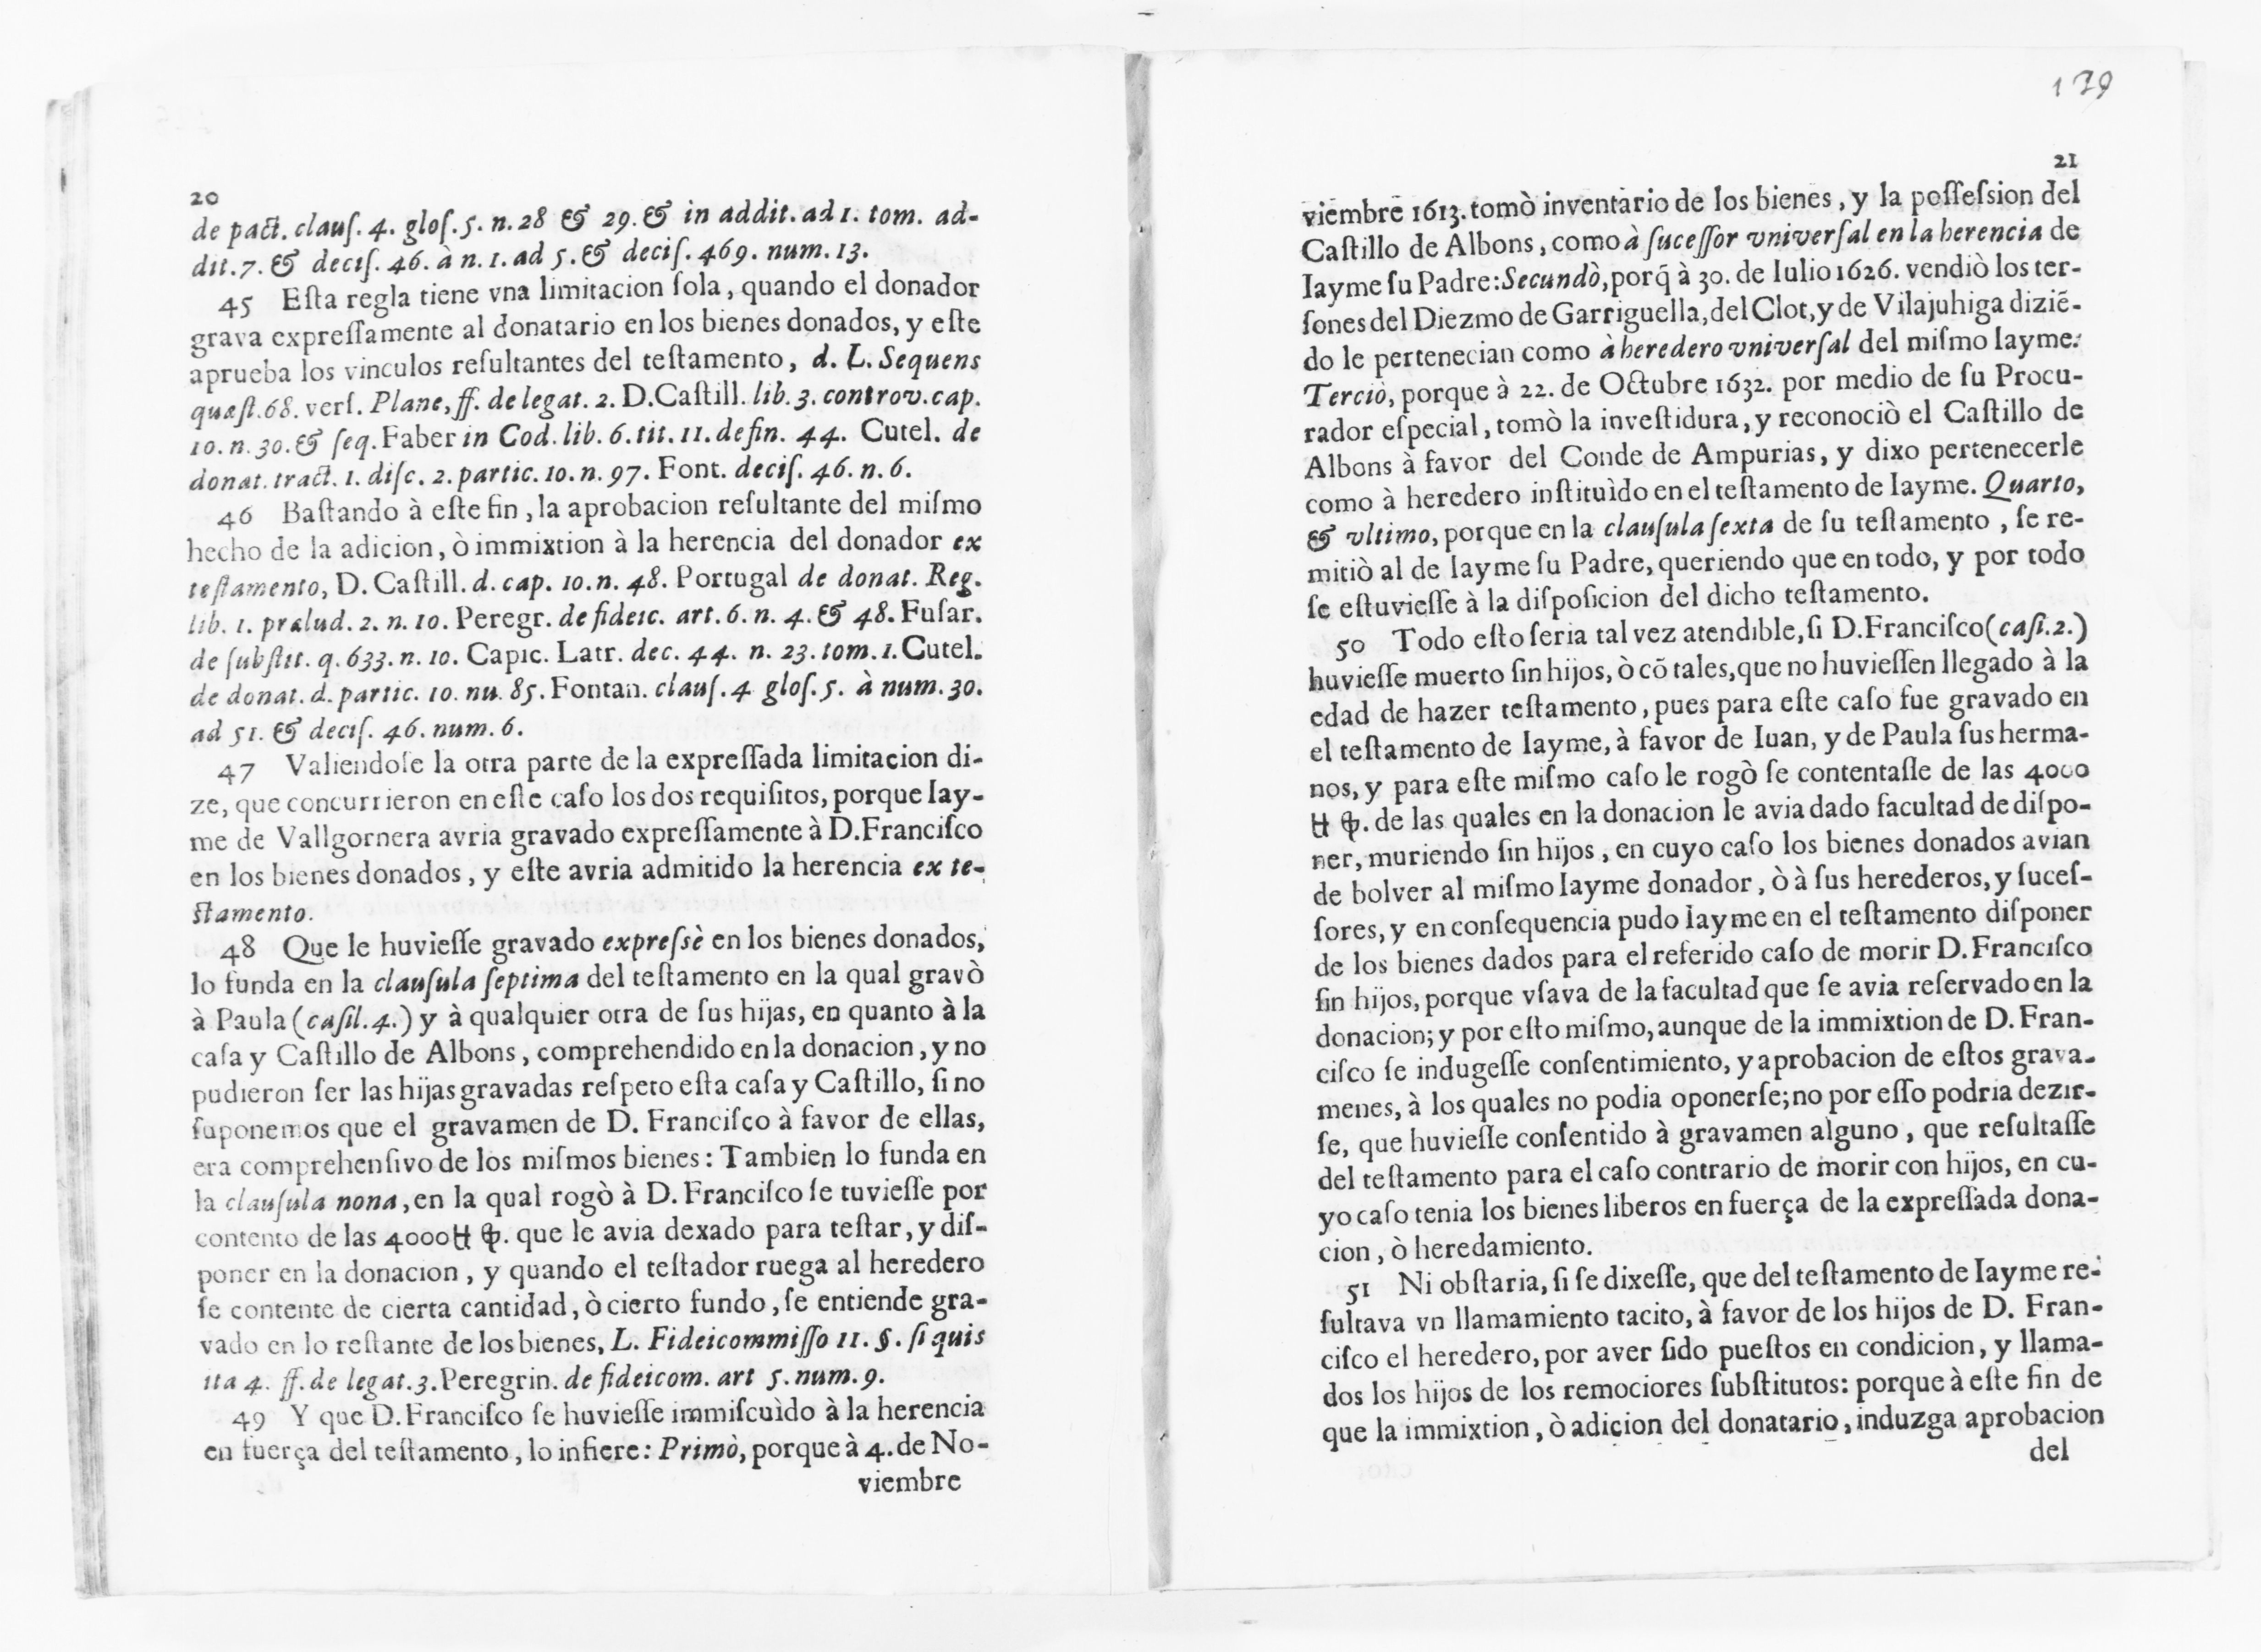 20
de pact. clauſ. 4. gloſ. 5. n. 28 & 29. & in addit. ad 1. tom. ad-
dit. 7. & deciſ. 46. à n. 1. ad 5. & deciſ. 469. num. 13.
45 Eſta regla tiene vna limitacion ſola, quando el donador
grava expreſſamente al donatario en los bienes donados, y eſte
aprueba los vinculos reſultantes del teſtamento, d. L. Sequens
quæſt. 68. verſ. Plane, ff. de legat. 2. D. Caſtill. lib. 3. controv. cap.
10. n. 30. & ſeq. Faber in Cod. lib. 6. tit. 11. defin. 44. Cutel. de
donat. tract. 1. diſc. 2. partic. 10. n. 97. Font. deciſ. 46. n. 6.
46 Baſtando à eſte fin, la aprobacion reſultante del miſmo
hecho de la adicion, ò immixtion à la herencia del donador ex
teſtamento, D. Caſtill. d. cap. 10. n. 48. Portugal de donat. Reg.
lib. 1. prælud. 2. n. 10. Peregr. de fideic. art. 6. n. 4. & 48. Fuſar.
de ſubſtit. q. 633. n. 10. Capic. Latr. dec. 44. n. 23. tom. 1. Cutel.
de donat. d. partic. 10. nu. 85. Fontan. clauſ. 4 gloſ. 5. à num. 30.
ad 51. & deciſ. 46. num. 6.
47 Valiendoſe la otra parte de la expreſſada limitacion di-
ze, que concurrieron en eſte caſo los dos requiſitos, porque Iay-
me de Vallgornera avria gravado expreſſamente à D. Franciſco
en los bienes donados, y eſte avria admitido la herencia ex te-
ſtamento.
48 Que le huvieſſe gravado expreſsè en los bienes donados,
lo funda en la clauſula ſeptima del teſtamento en la qual gravò
à Paula (caſil. 4.) y à qualquier otra de ſus hijas, en quanto à la
caſa y Caſtillo de Albons, comprehendido en la donacion, y no
pudieron ſer las hijas gravadas reſpeto eſta caſa y Caſtillo, ſi no
ſuponemos que el gravamen de D. Franciſco à favor de ellas,
era comprehenſivo de los miſmos bienes: Tambien lo funda en
la clauſula nona, en la qual rogò à D. Franciſco ſe tuvieſſe por
contento de las 4000 que le avia dexado para teſtar, y diſ-
poner en la donacion, y quando el teſtador ruega al heredero
ſe contente de cierta cantidad, ò cierto fundo, ſe entiende gra-
vado en lo reſtante de los bienes, L. Fideicommiſſo 11. §. ſi quis
ita 4. ff. de legat. 3. Peregrin. de fideicom. art 5. num. 9.
49 Y que D. Franciſco ſe huvieſſe immiſcuìdo à la herencia
en fuerça del teſtamento, lo infiere: Primò, porque à 4. de No-
viembre
179
21
viembre 1613. tomò inventario de los bienes, y la poſſeſsion del
Caſtillo de Albons, como à ſuceſſor vniverſal en la herencia de
Iayme ſu Padre: Secundò, porq̃ à 30. de Iulio 1626. vendiò los ter-
ſones del Diezmo de Garriguella, del Clot, y de Vilajuhiga diziẽ-
do le pertenecian como à heredero vniverſal del miſmo Iayme.
Terciò, porque à 22. de Octubre 1632. por medio de ſu Procu-
rador eſpecial, tomò la inveſtidura, y reconociò el Caſtillo de
Albons à favor del Conde de Ampurias, y dixo pertenecerle
como à heredero inſtituìdo en el teſtamento de Iayme. Quarto,
& vltimo, porque en la clauſula ſexta de ſu teſtamento, ſe re-
mitiò al de Iayme ſu Padre, queriendo que en todo, y por todo
ſe eſtuvieſſe à la diſpoſicion del dicho teſtamento.
50 Todo eſto ſeria tal vez atendible, ſi D. Franciſco (caſi. 2.)
huvieſſe muerto ſin hijos, ò cõ tales, que no huvieſſen llegado à la
edad de hazer teſtamento, pues para eſte caſo fue gravado en
el teſtamento de Iayme, à favor de Iuan, y de Paula ſus herma-
nos, y para eſte miſmo caſo le rogò ſe contentaſſe de las 4000
de las quales en la donacion le avia dado facultad de diſpo-
ner, muriendo ſin hijos, en cuyo caſo los bienes donados avian
de bolver al miſmo Iayme donador, ò à ſus herederos, y ſuceſ-
ſores, y en conſequencia pudo Iayme en el teſtamento diſponer
de los bienes dados para el referido caſo de morir D. Franciſco
ſin hijos, porque vſava de la facultad que ſe avia reſervado en la
donacion; y por eſto miſmo, aunque de la immixtion de D. Fran-
ciſco ſe indugeſſe conſentimiento, y aprobacion de eſtos grava-
menes, à los quales no podia oponerſe; no por eſſo podria dezir-
ſe, que huvieſſe conſentido à gravamen alguno, que reſultaſſe
del teſtamento para el caſo contrario de morir con hijos, en cu-
yo caſo tenia los bienes liberos en fuerça de la expreſſada dona-
cion, ò heredamiento.
51 Ni obſtaria, ſi ſe dixeſſe, que del teſtamento de Iayme re-
ſultava vn llamamiento tacito, à favor de los hijos de D. Fran-
ciſco el heredero, por aver ſido pueſtos en condicion, y llama-
dos los hijos de los remociores ſubſtitutos: porque à eſte fin de
que la immixtion, ò adicion del donatario, induzga aprobacion
del